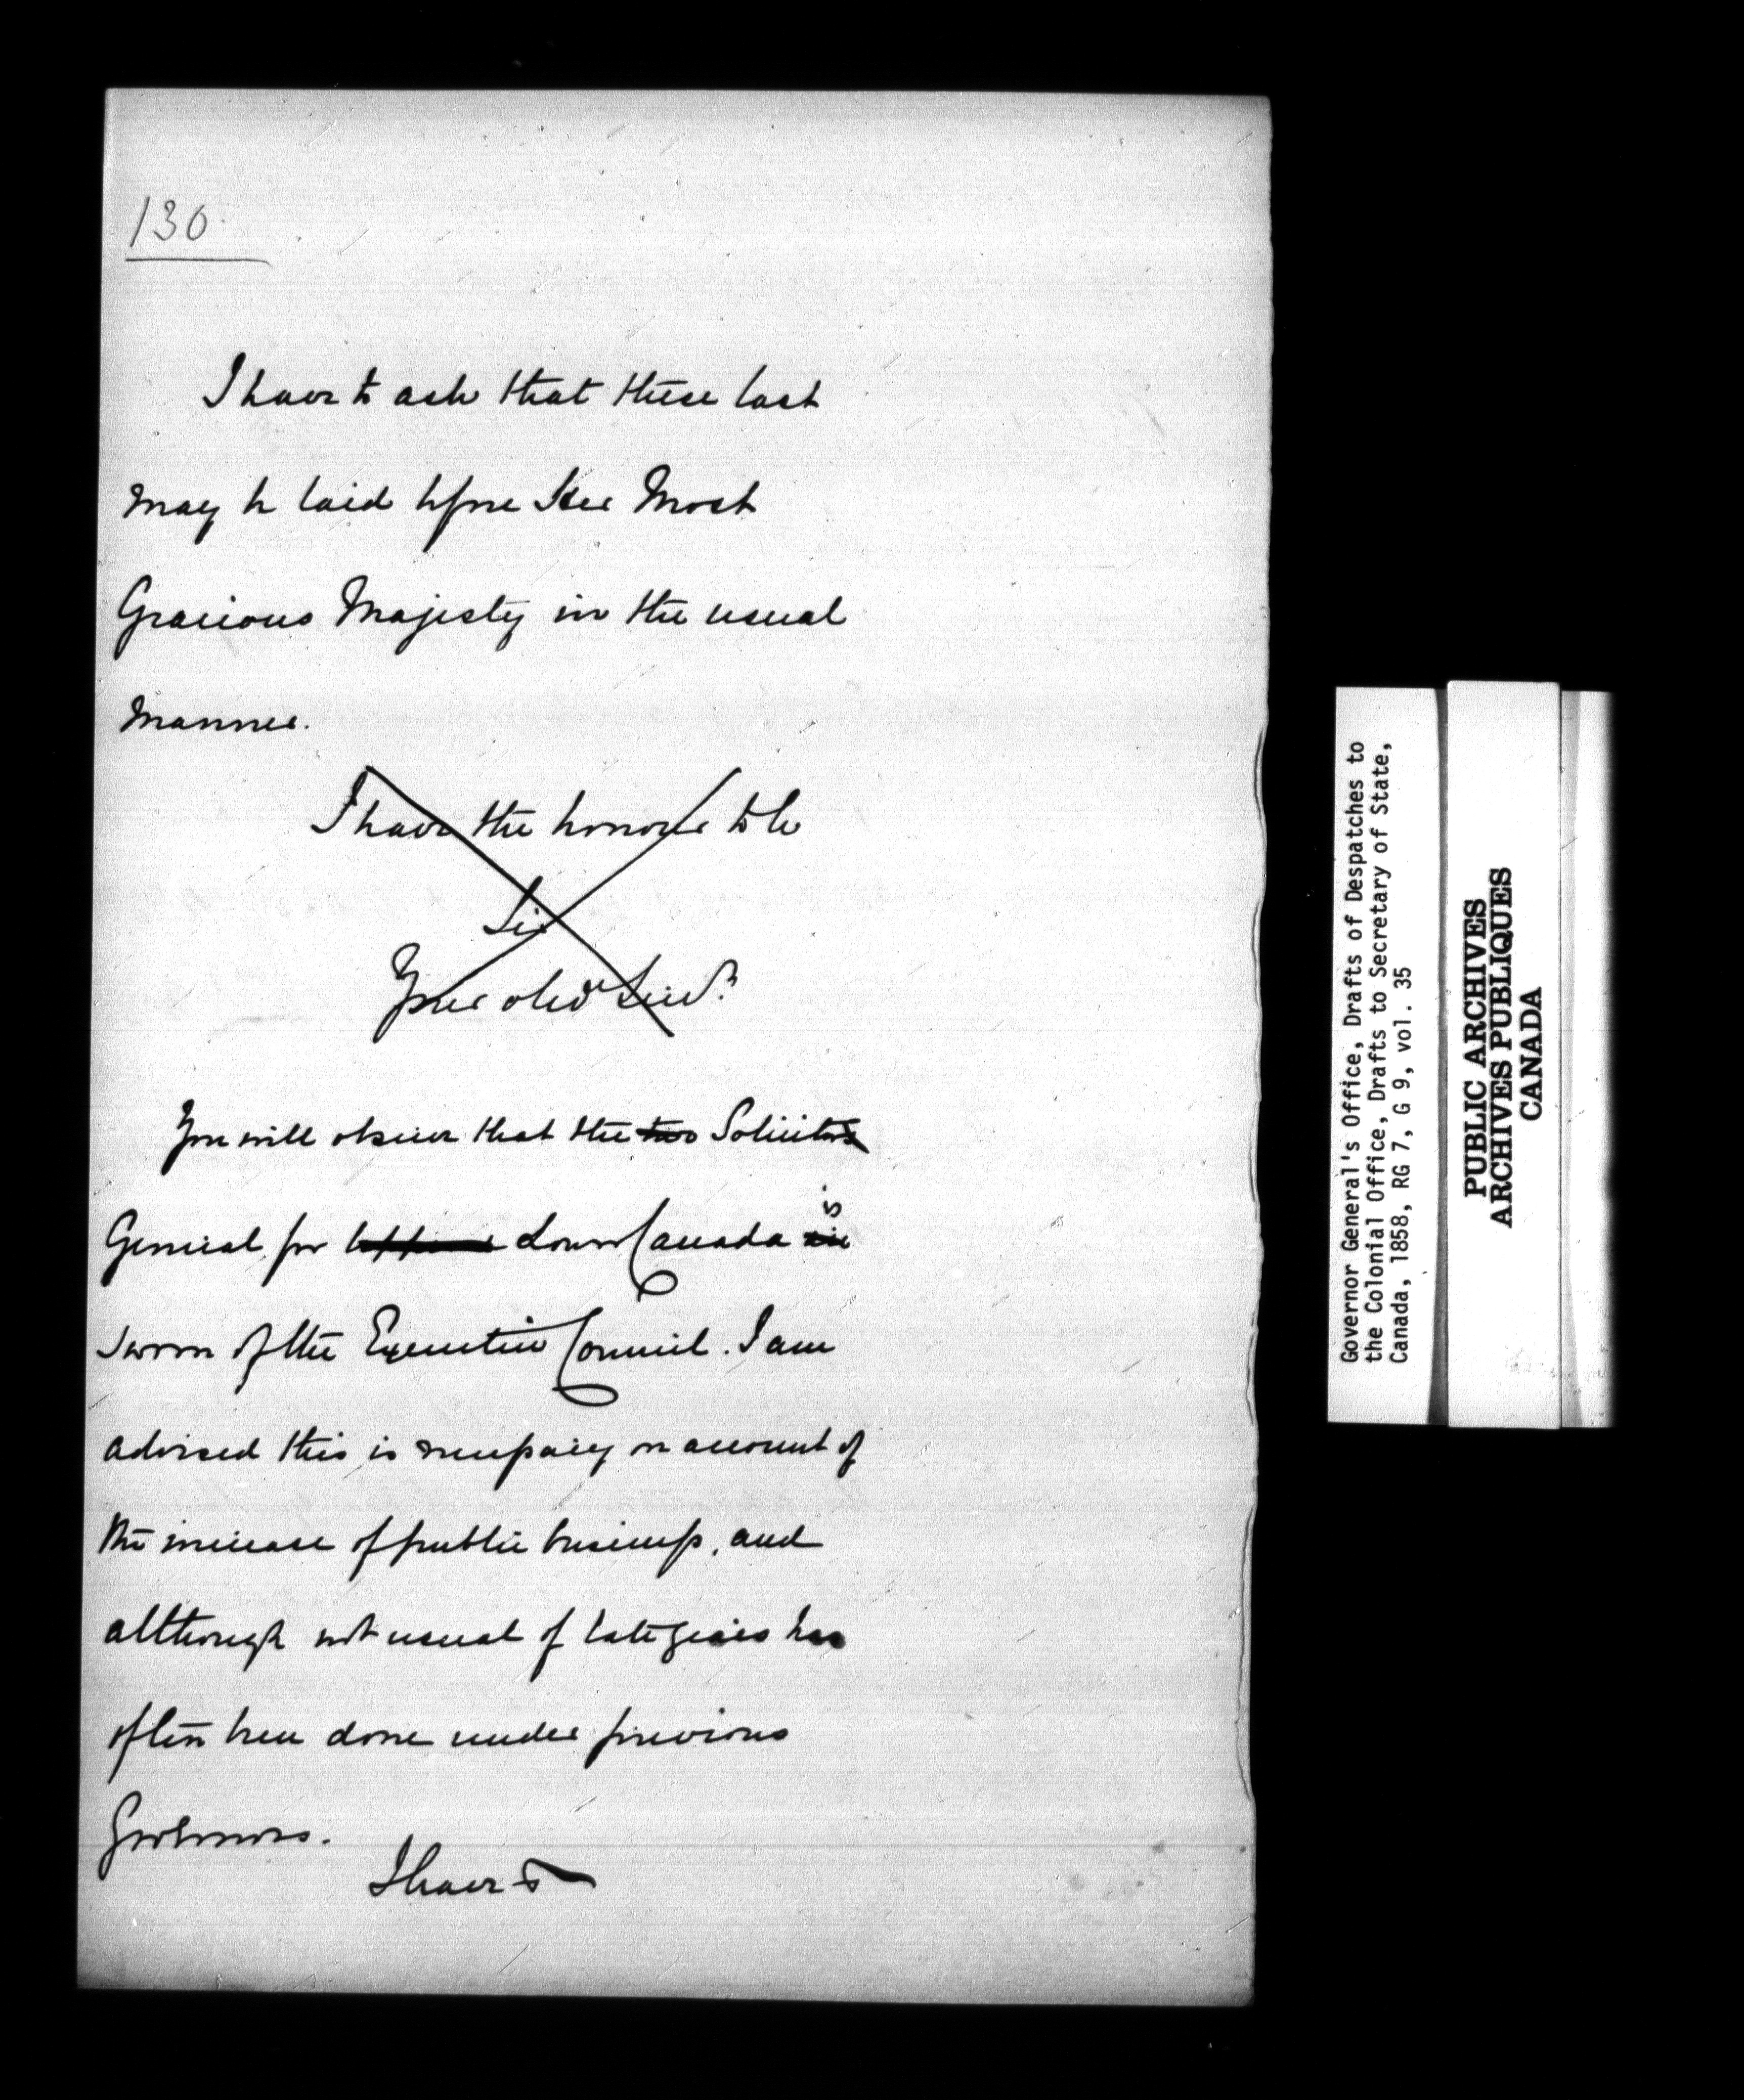 130
I have to ask that these last
may be laid before Her Most
Gracious Majesty in the usual
manner.
I have the honor to be
Sir
Your obedt Servt
You will observe that the two Solicitors
General for Upper Lower Canada is are
sworn of the Executive Council. I am
advised this is necessary on account of
the increase of public business, and
although not usual of late years has
often been done under previous
Governors.
I have &
Governor General's Office, Drafts of Despatches to
the Colonial Office, Drafts to Secretary of State,
Canada, 1858, RG 7, G 9, vol. 35
PUBLIC ARCHIVES
ARCHIVES PUBLIQUES
CANADA